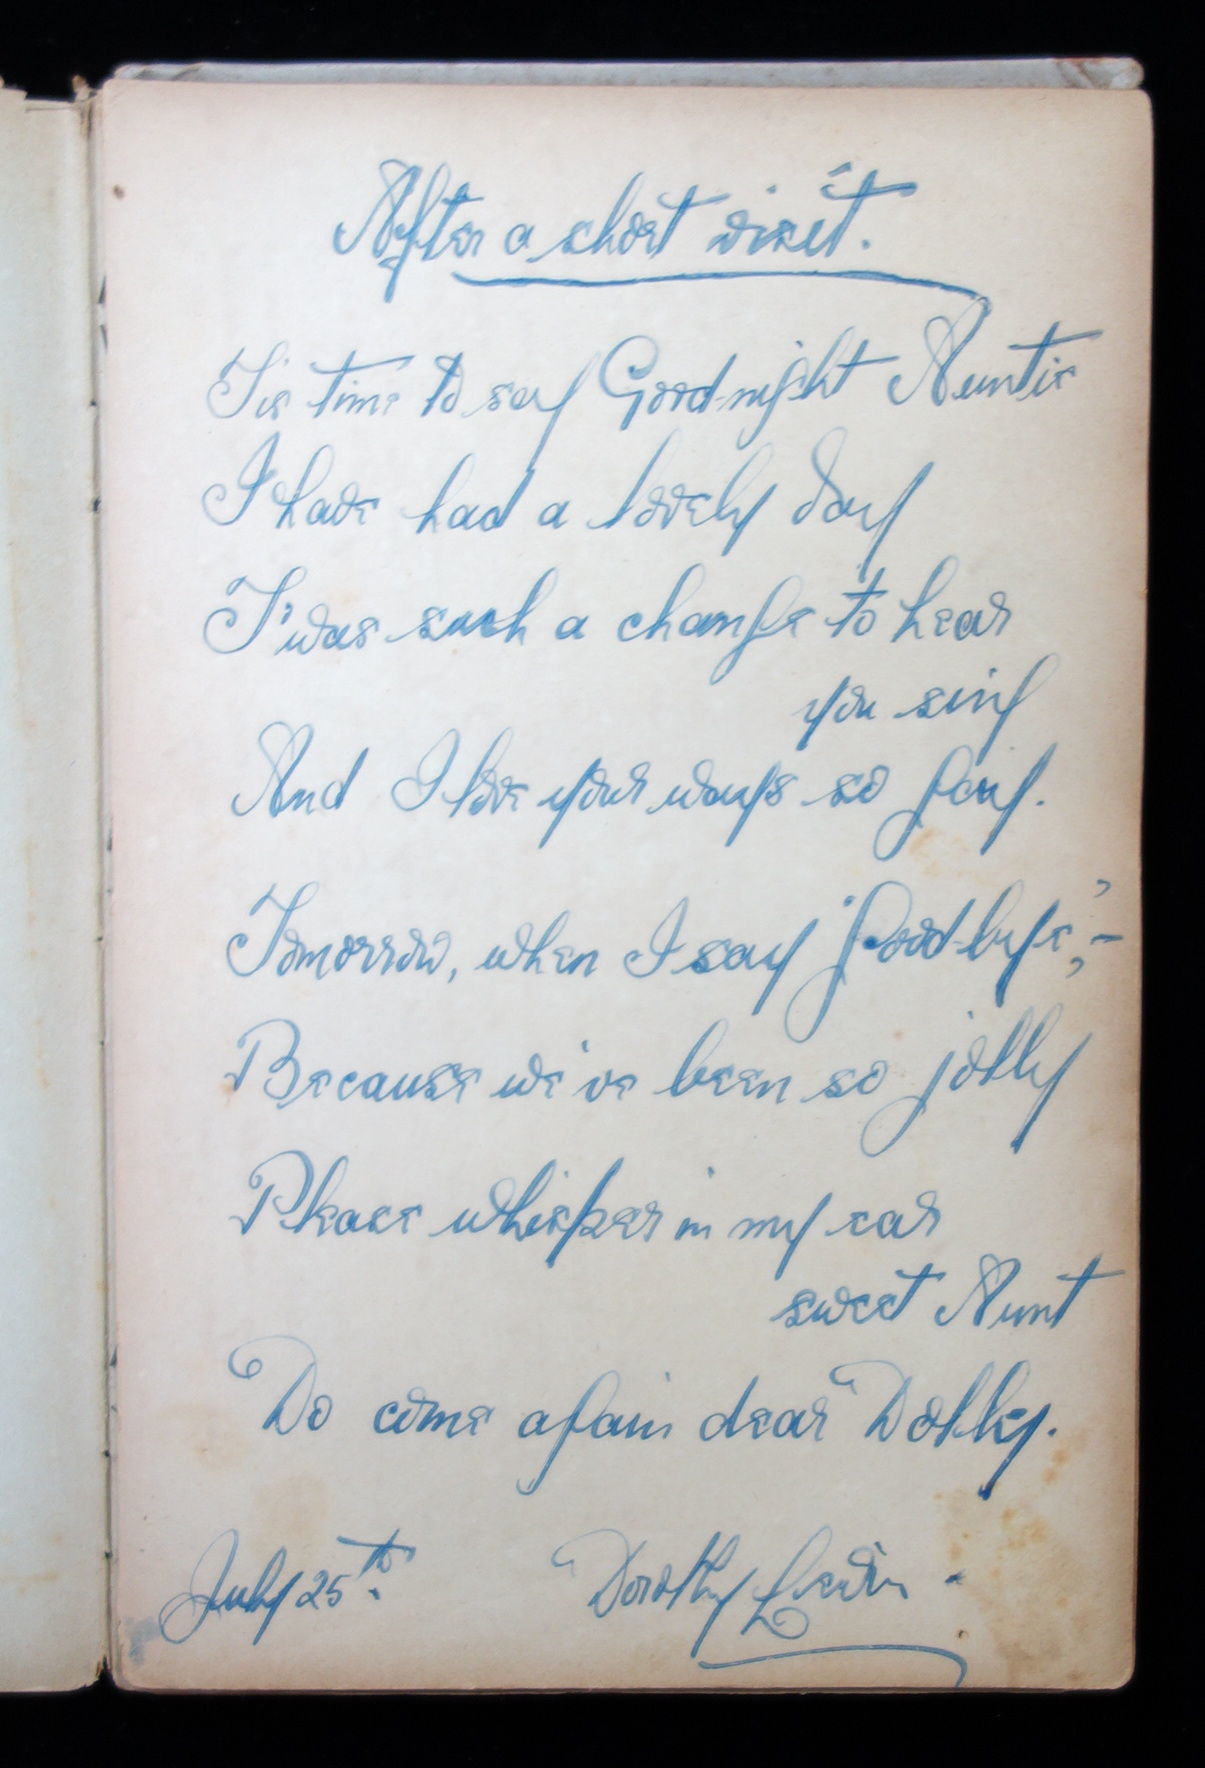 After a short visit.
'Tis time to say Good-night Auntie
I have had a lovely day
T'was such a change to hear
you sing
And I love your ways so gay.
Tomorrow, when I say "Good-bye",-
Because we've been so jolly
Please whisper in my ear
sweet Aunt
"Do come again dear Dolly.
July 25th. Dorothy